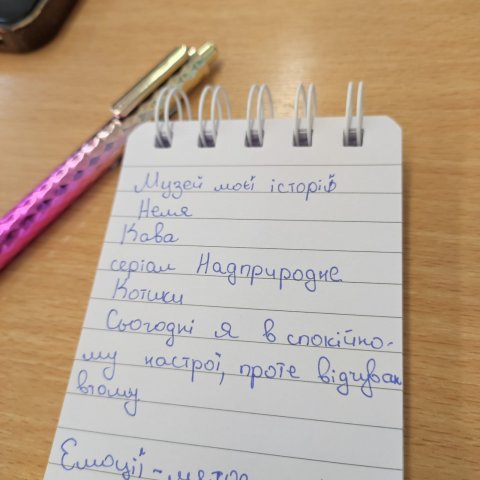 Музей моєї історії
Немя
Кава
серіал Надприродне
Котики
Сьогодні я в спокійно-
му настрої, проте відчуваю
втому
Емоції -